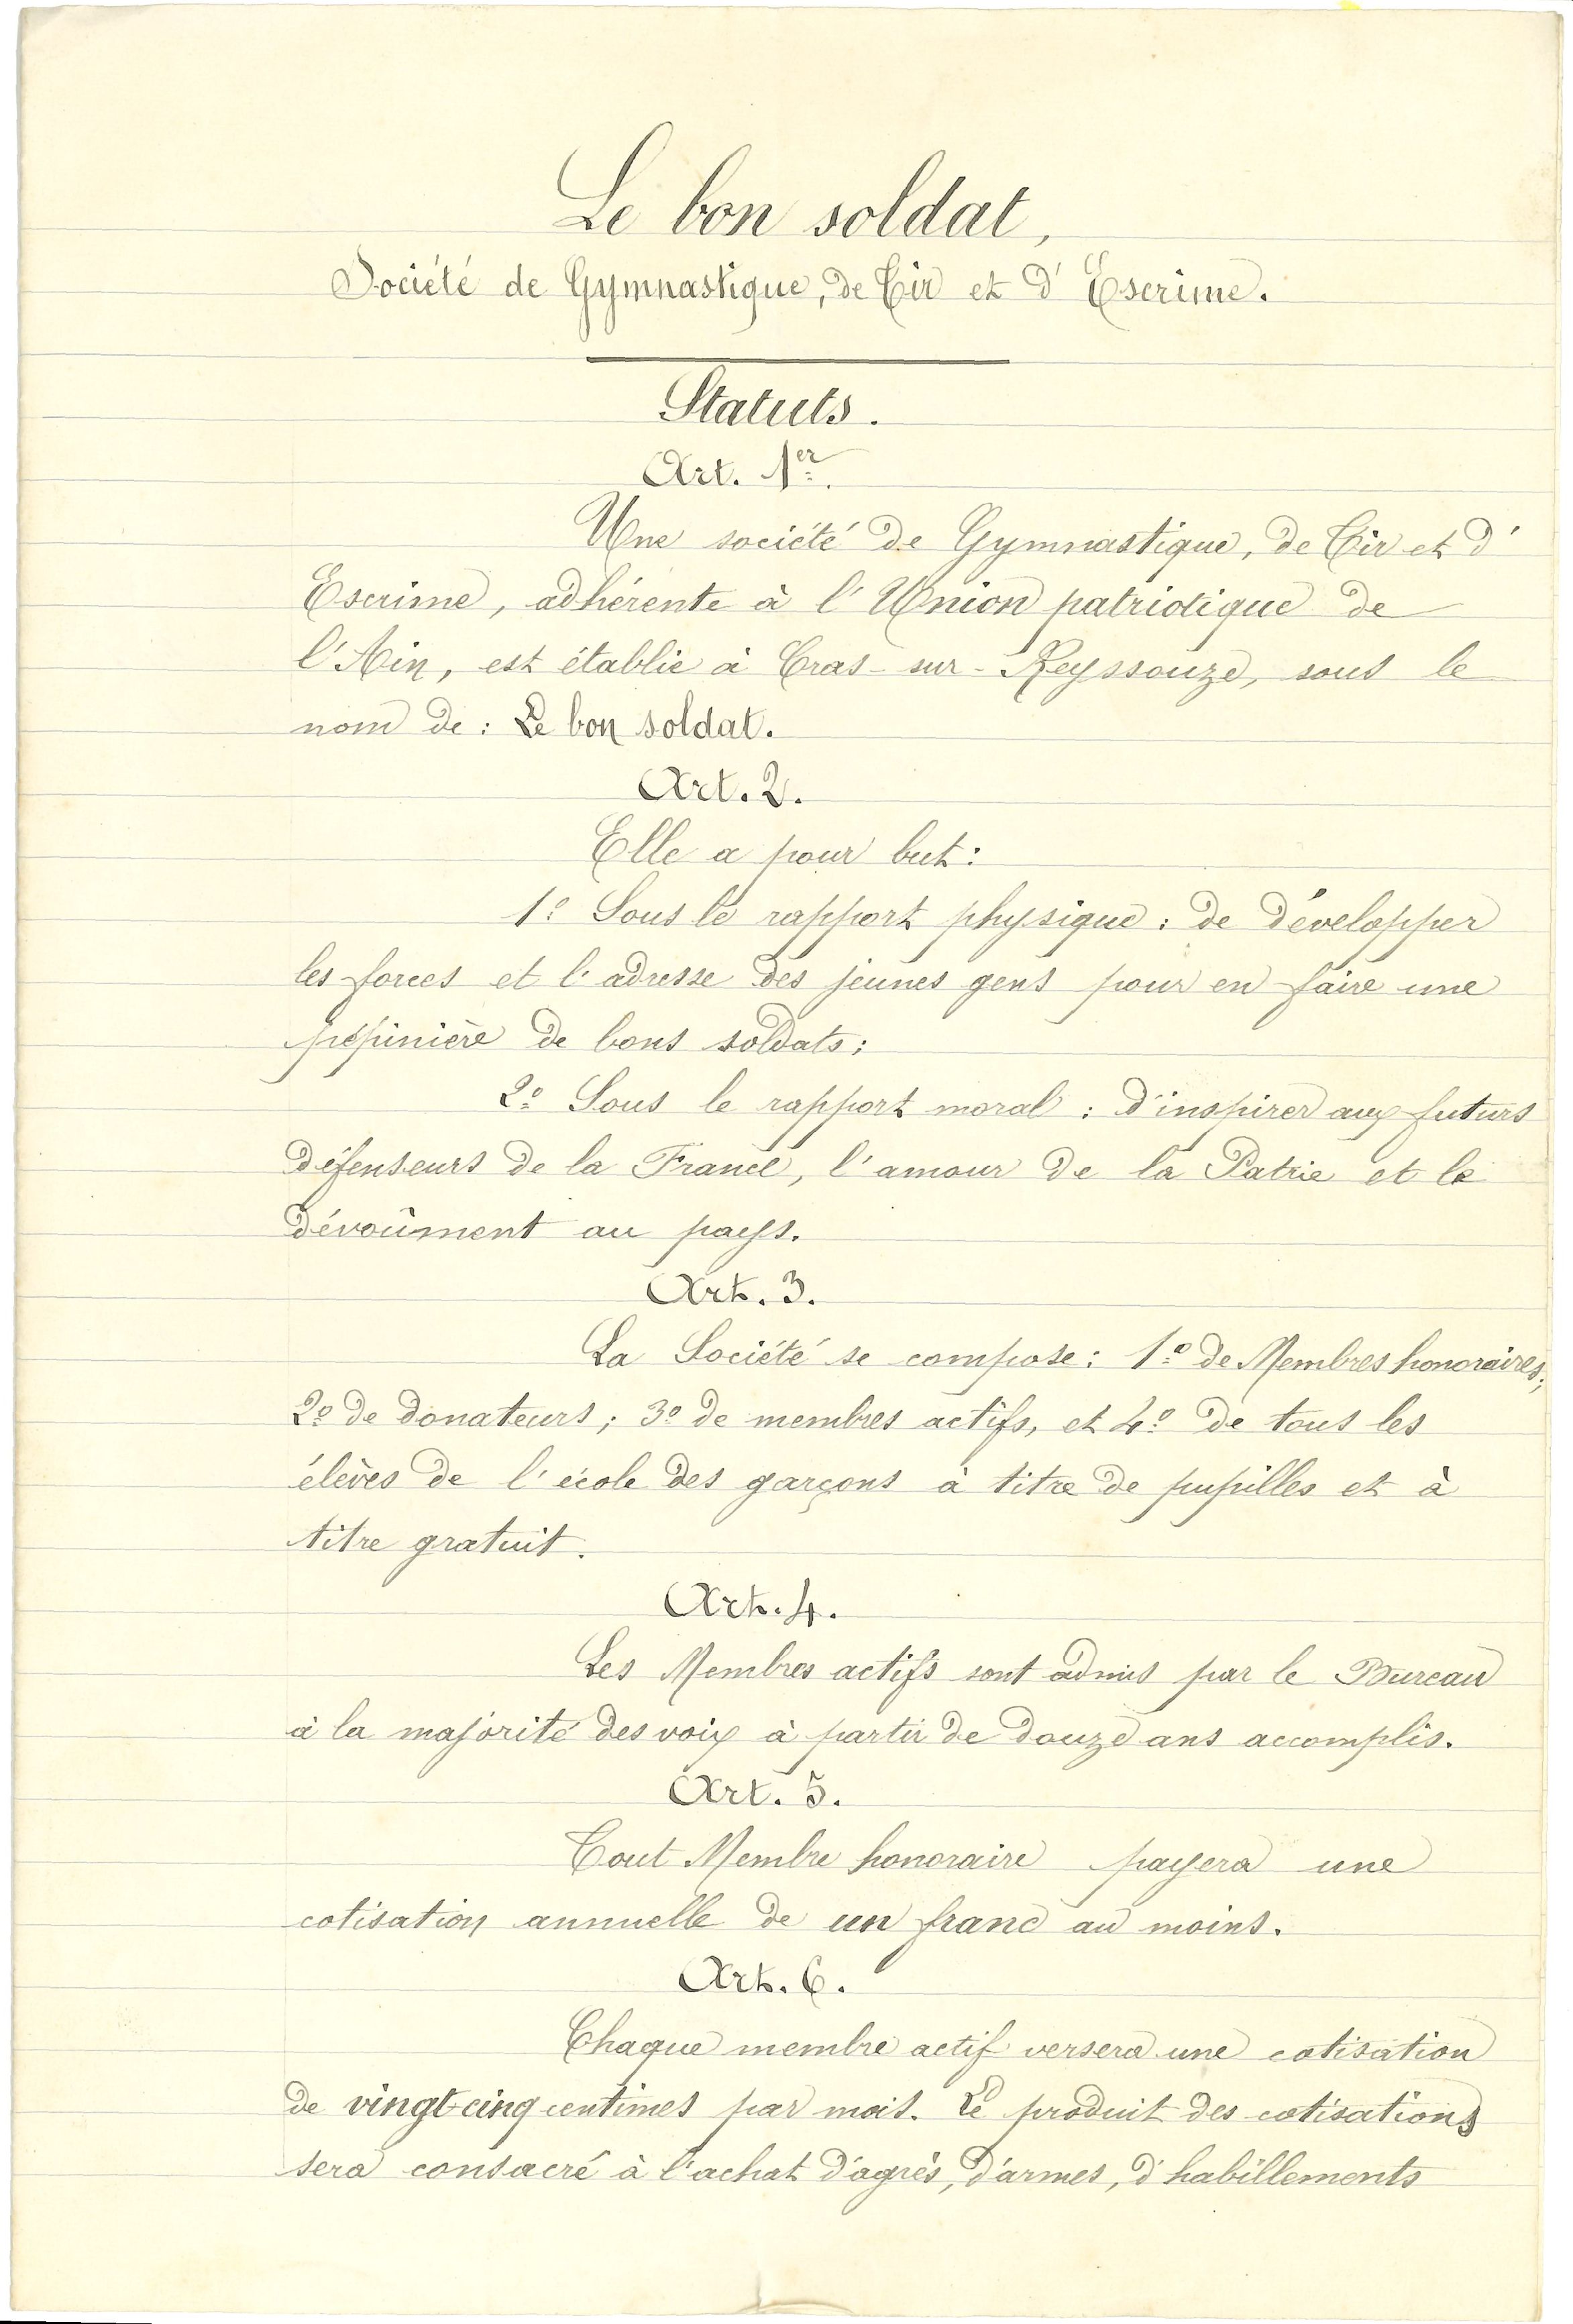 Le bon soldat,
Société de Gymnastique, de Tir et d'Escrime.
Statuts.
Art. 1er.
Une société de Gymnastique, de Tir et d'
Escrime, adhérente à l'Union patriotique de
l'Ain, est établie à Cras-sur-Reyssouze, sous le
nom de : Le bon soldat.
Art. 2.
Elle a pour but :
1º Sous le rapport physique : de développer
les forces et l'adresse des jeunes gens pour en faire une
pépinière de bons soldats ;
2º Sous le rapport moral : d'inspirer aux futurs
défenseurs de la France, l'amour de la Patrie et le
dévoûment au pays.
Art. 3.
La Société se compose : 1º de Membres honoraires ;
2º de donateurs ; 3º de membres actifs, et 4º de tous les
élèves de l'école des garçons à titre de pupilles et à
titre gratuit.
Art. 4.
Les Membres actifs sont admis par le Bureau
à la majorité des voix à partir de douze ans accomplis.
Art. 5.
Tout Membre honoraire payera une
cotisation annuelle de un franc au moins.
Art. 6.
Chaque membre actif versera une cotisation
de vingt-cinq centimes par mois. Le produit des cotisations
sera consacré à l'achat d'agrès, d'armes, d'habillements